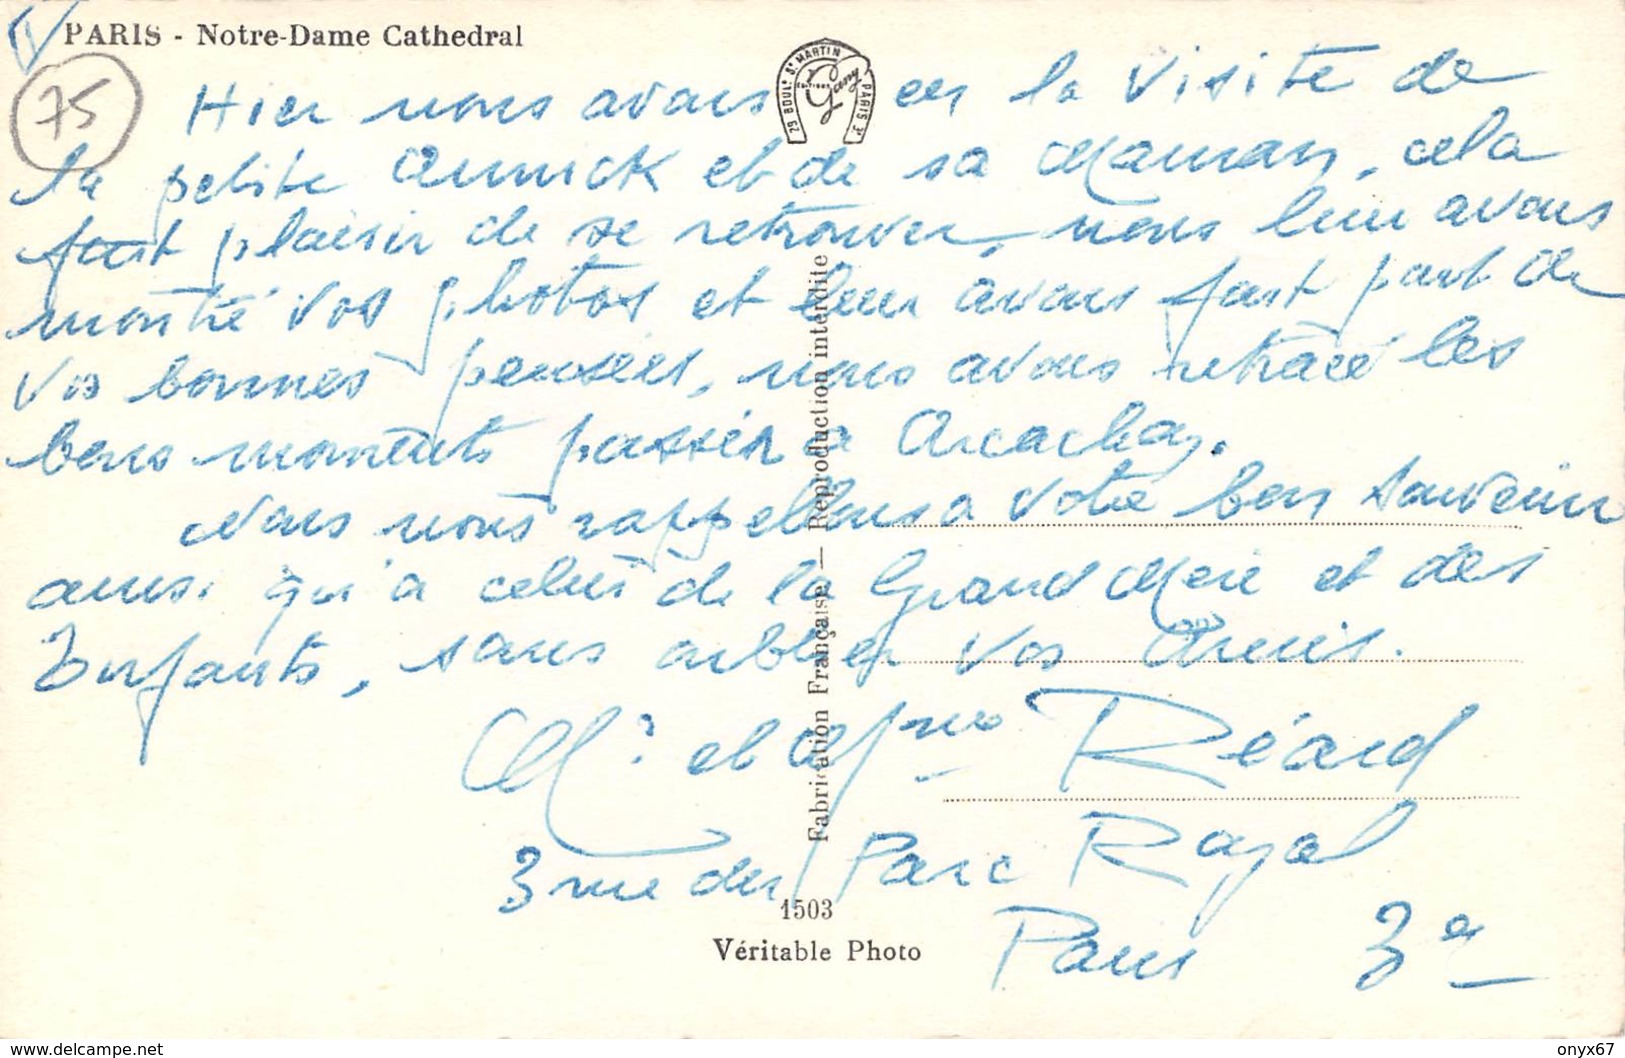 PARIS - Notre-Dame Cathedral
75
29 BOULD ST MARTIN PARIS 3e
EDITIONS
Guy
Hier nous avons eu la Visite de
la petite Annick et de sa Maman, cela
fait plaisir de se retrouver, nous leur avons
montré vos photos et leur avons fait part de
vos bonnes pensées, nous avons retracé les
bons moments passés a Arcachon.
Nous nous rappellons a votre bon souvenir
ainsi qu'a celui de la Grand Mère et des
Enfants, sans oublier vos Amis.
Mr et Mme Réard
3 rue du Parc Royal
Paris 3e
Fabrication Française — Reproduction interdite
1503
Véritable Photo
https://www.delcampe.net
onyx67